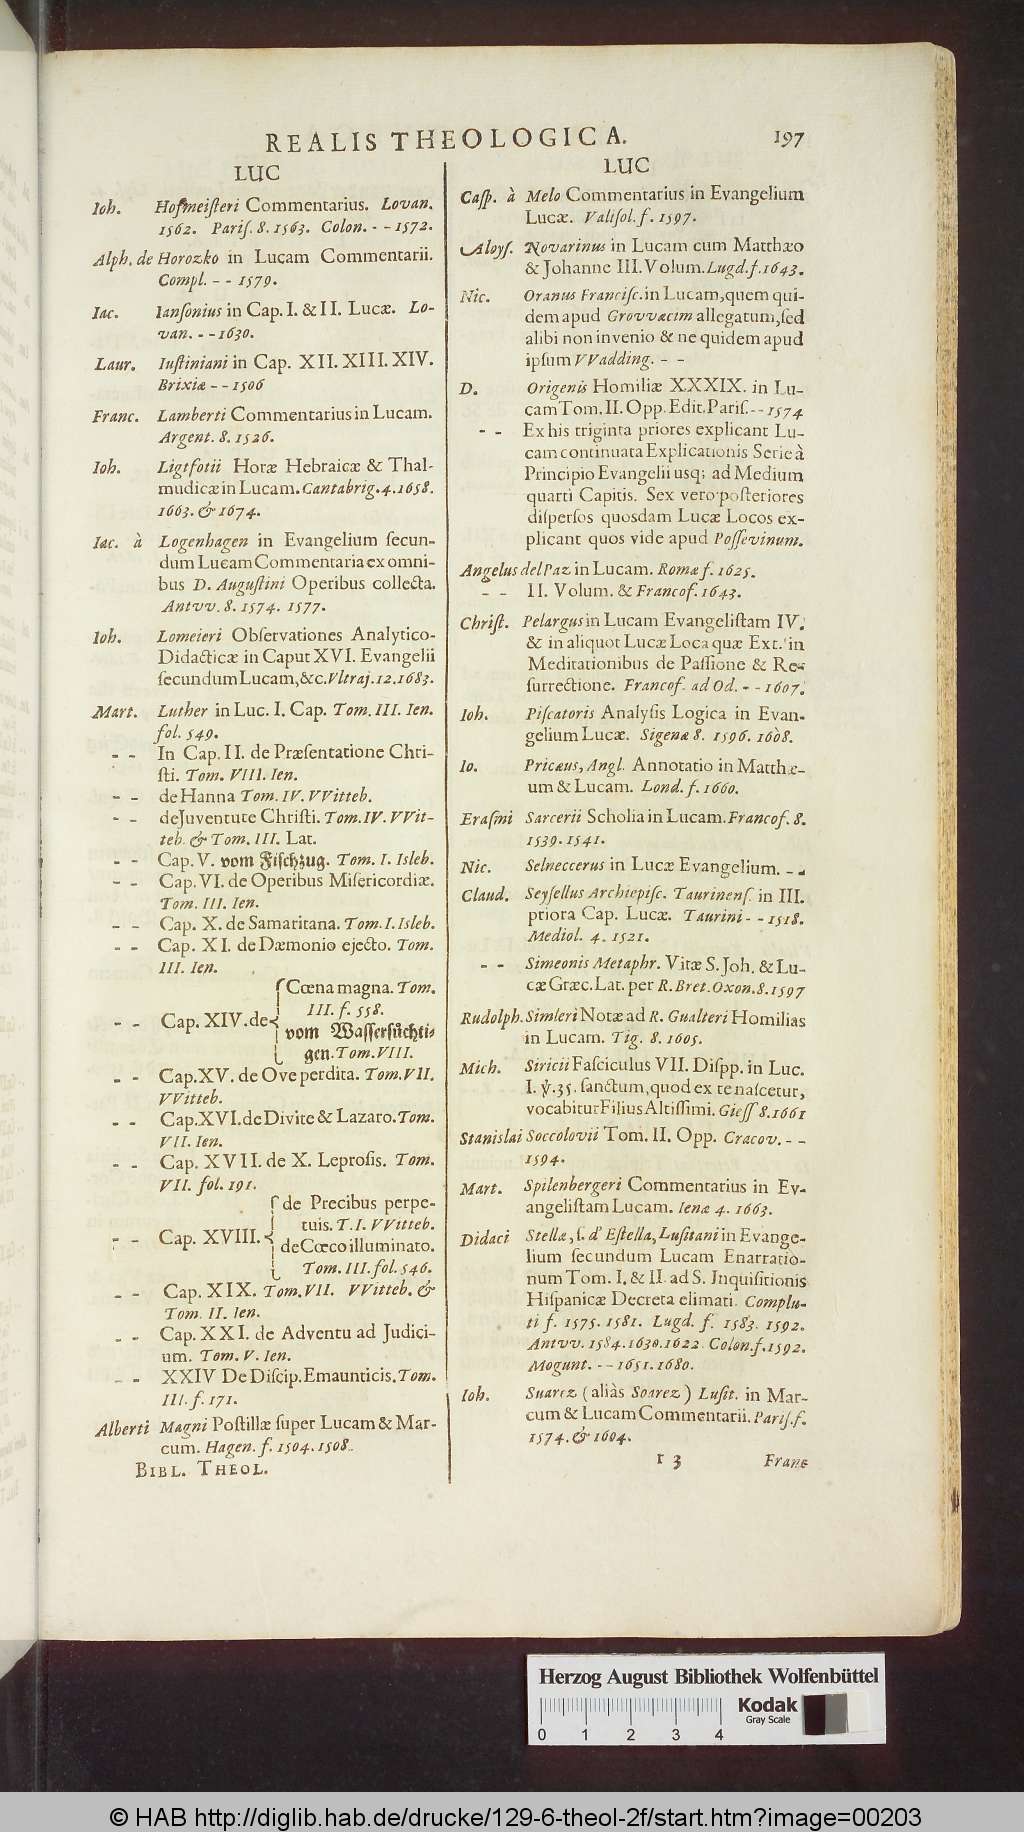 REALIS THEOLOGICA. 197
LUC
Ioh. Hofmeiſteri Commentarius. Lovan.
1562. Pariſ. 8. 1563. Colon. - - 1572.
Alph. de Horozko in Lucam Commentarii.
Compl. - - 1579.
Iac. Ianſonius in Cap. I. & II. Lucæ. Lo-
van. - - 1630.
Laur. Iuſtiniani in Cap. XII. XIII. XIV.
Brixiæ - - 1506
Franc. Lamberti Commentarius in Lucam.
Argent. 8. 1526.
Ioh. Ligtfotii Horæ Hebraicæ & Thal-
mudicæ in Lucam. Cantabrig. 4. 1658.
1663. & 1674.
Iac. à Logenhagen in Evangelium ſecun-
dum Lucam Commentaria ex omni-
bus D. Auguſtini Operibus collecta.
Antvv. 8. 1574. 1577.
Ioh. Lomeieri Obſervationes Analytico-
Didacticæ in Caput XVI. Evangelii
ſecundum Lucam, &c. Vltraj. 12. 1683.
Mart. Luther in Luc. I. Cap. Tom. III. Ien.
fol. 549.
- - In Cap. II. de Præſentatione Chri-
ſti. Tom. VIII. Ien.
- - de Hanna Tom. IV. VVitteb.
- - de Juventute Chriſti. Tom. IV. VVit-
teb. & Tom. III. Lat.
- - Cap. V. vom Fiſchzug. Tom. I. Isleb.
- - Cap. VI. de Operibus Miſericordiæ.
Tom. III. Ien.
- - Cap. X. de Samaritana. Tom. I. Isleb.
- - Cap. XI. de Dæmonio ejecto. Tom.
III. Ien.
Cœna magna. Tom.
III. f. 558.
- - Cap. XIV. de
vom Waſſerſüchti-
gen. Tom. VIII.
- - Cap. XV. de Ove perdita. Tom. VII.
VVitteb.
- - Cap. XVI. de Divite & Lazaro. Tom.
VII. Ien.
- - Cap. XVII. de X. Leproſis. Tom.
VII. fol. 191.
de Precibus perpe-
tuis. T. I. VVitteb.
- - Cap. XVIII.
de Cœco illuminato.
Tom. III. fol. 546.
- - Cap. XIX. Tom. VII. VVitteb. &
Tom. II. Ien.
- - Cap. XXI. de Adventu ad Judici-
um. Tom. V. Ien.
- - XXIV De Diſcip. Emaunticis. Tom.
III. f. 171.
Alberti Magni Poſtillæ ſuper Lucam & Mar-
cum. Hagen. f. 1504. 1508.
BIBL. THEOL.
LUC
Caſp. à Melo Commentarius in Evangelium
Lucæ. Valiſol. f. 1597.
Aloyſ. Novarinus in Lucam cum Matthæo
& Johanne III. Volum. Lugd. f. 1643.
Nic. Oranus Franciſc. in Lucam, quem qui-
dem apud Grovvæcim allegatum, ſed
alibi non invenio & ne quidem apud
ipſum VVadding. - -
D. Origenis Homiliæ XXXIX. in Lu-
cam Tom. II. Opp. Edit. Pariſ. - - 1574
- - Ex his triginta priores explicant Lu-
cam continuata Explicationis Serie à
Principio Evangelii usq; ad Medium
quarti Capitis. Sex vero poſteriores
diſperſos quosdam Lucæ Locos ex-
plicant quos vide apud Poſſevinum.
Angelus del Paz in Lucam. Romæ f. 1625.
- - II. Volum. & Francof. 1643.
Chriſt. Pelargus in Lucam Evangeliſtam IV.
& in aliquot Lucæ Loca quæ Ext. in
Meditationibus de Paſſione & Re-
ſurrectione. Francof. ad Od. - - 1607.
Ioh. Piſcatoris Analyſis Logica in Evan-
gelium Lucæ. Sigenæ 8. 1596. 1608.
Io. Pricæus, Angl. Annotatio in Matthæ-
um & Lucam. Lond. f. 1660.
Eraſmi Sarcerii Scholia in Lucam. Francof. 8.
1539. 1541.
Nic. Selneccerus in Lucæ Evangelium. - -
Claud. Seyſellus Archiepiſc. Taurinenſ. in III.
priora Cap. Lucæ. Taurini - - 1518.
Mediol. 4. 1521.
- - Simeonis Metaphr. Vitæ S. Joh. & Lu-
cæ Græc. Lat. per R. Bret. Oxon. 8. 1597
Rudolph. Simleri Notæ ad R. Gualteri Homilias
in Lucam. Tig. 8. 1605.
Mich. Siricii Faſciculus VII. Diſpp. in Luc.
I. ℣. 35. ſanctum, quod ex te naſcetur,
vocabitur Filius Altiſſimi. Gieſſ 8. 1661
Stanislai Soccolovii Tom. II. Opp. Cracov. - -
1594.
Mart. Spilenbergeri Commentarius in Ev-
angeliſtam Lucam. Ienæ 4. 1663.
Didaci Stellæ, ſ. d' Eſtella, Luſitani in Evange-
lium ſecundum Lucam Enarratio-
num Tom. I. & II. ad S. Inquiſitionis
Hiſpanicæ Decreta elimati. Complu-
ti f. 1575. 1581. Lugd. f. 1583. 1592.
Antvv. 1584. 1630. 1622. Colon. f. 1592.
Mogunt. - - 1651. 1680.
Ioh. Suarez (aliàs Soarez) Luſit. in Mar-
cum & Lucam Commentarii. Pariſ. f.
1574. & 1604.
r 3 Franc
Herzog August Bibliothek Wolfenbüttel
Kodak
Gray Scale
0 1 2 3 4
© HAB http://diglib.hab.de/drucke/129-6-theol-2f/start.htm?image=00203